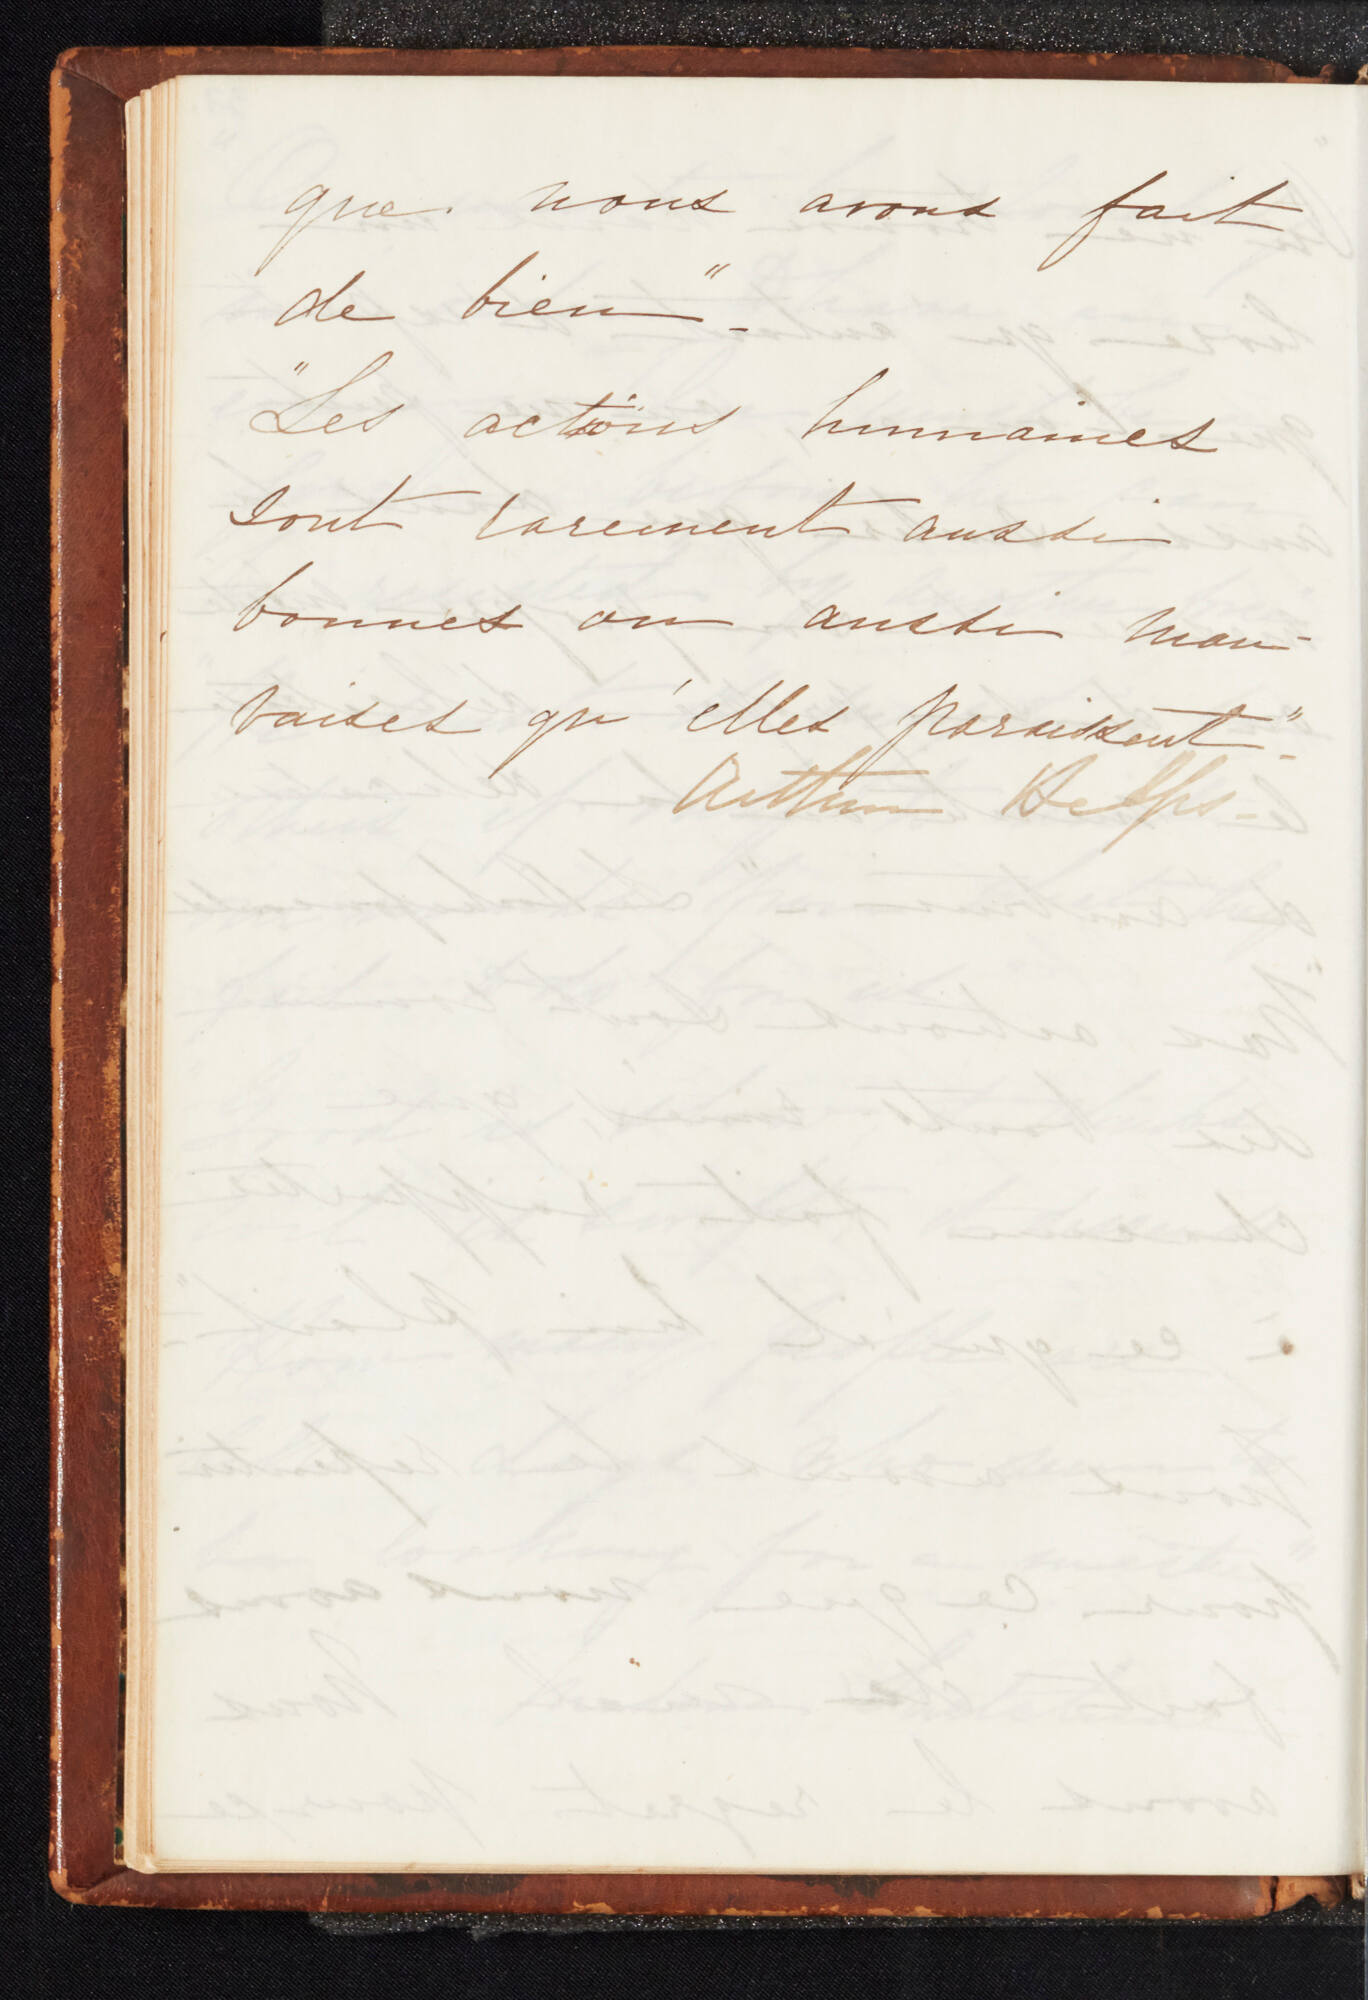 que nous avons fait
de bien"-
"Les actions humaines
sont rarement aussi
bonnes ou aussi mau-
vaises qu'elles paraissent"-
Arthur Helps-